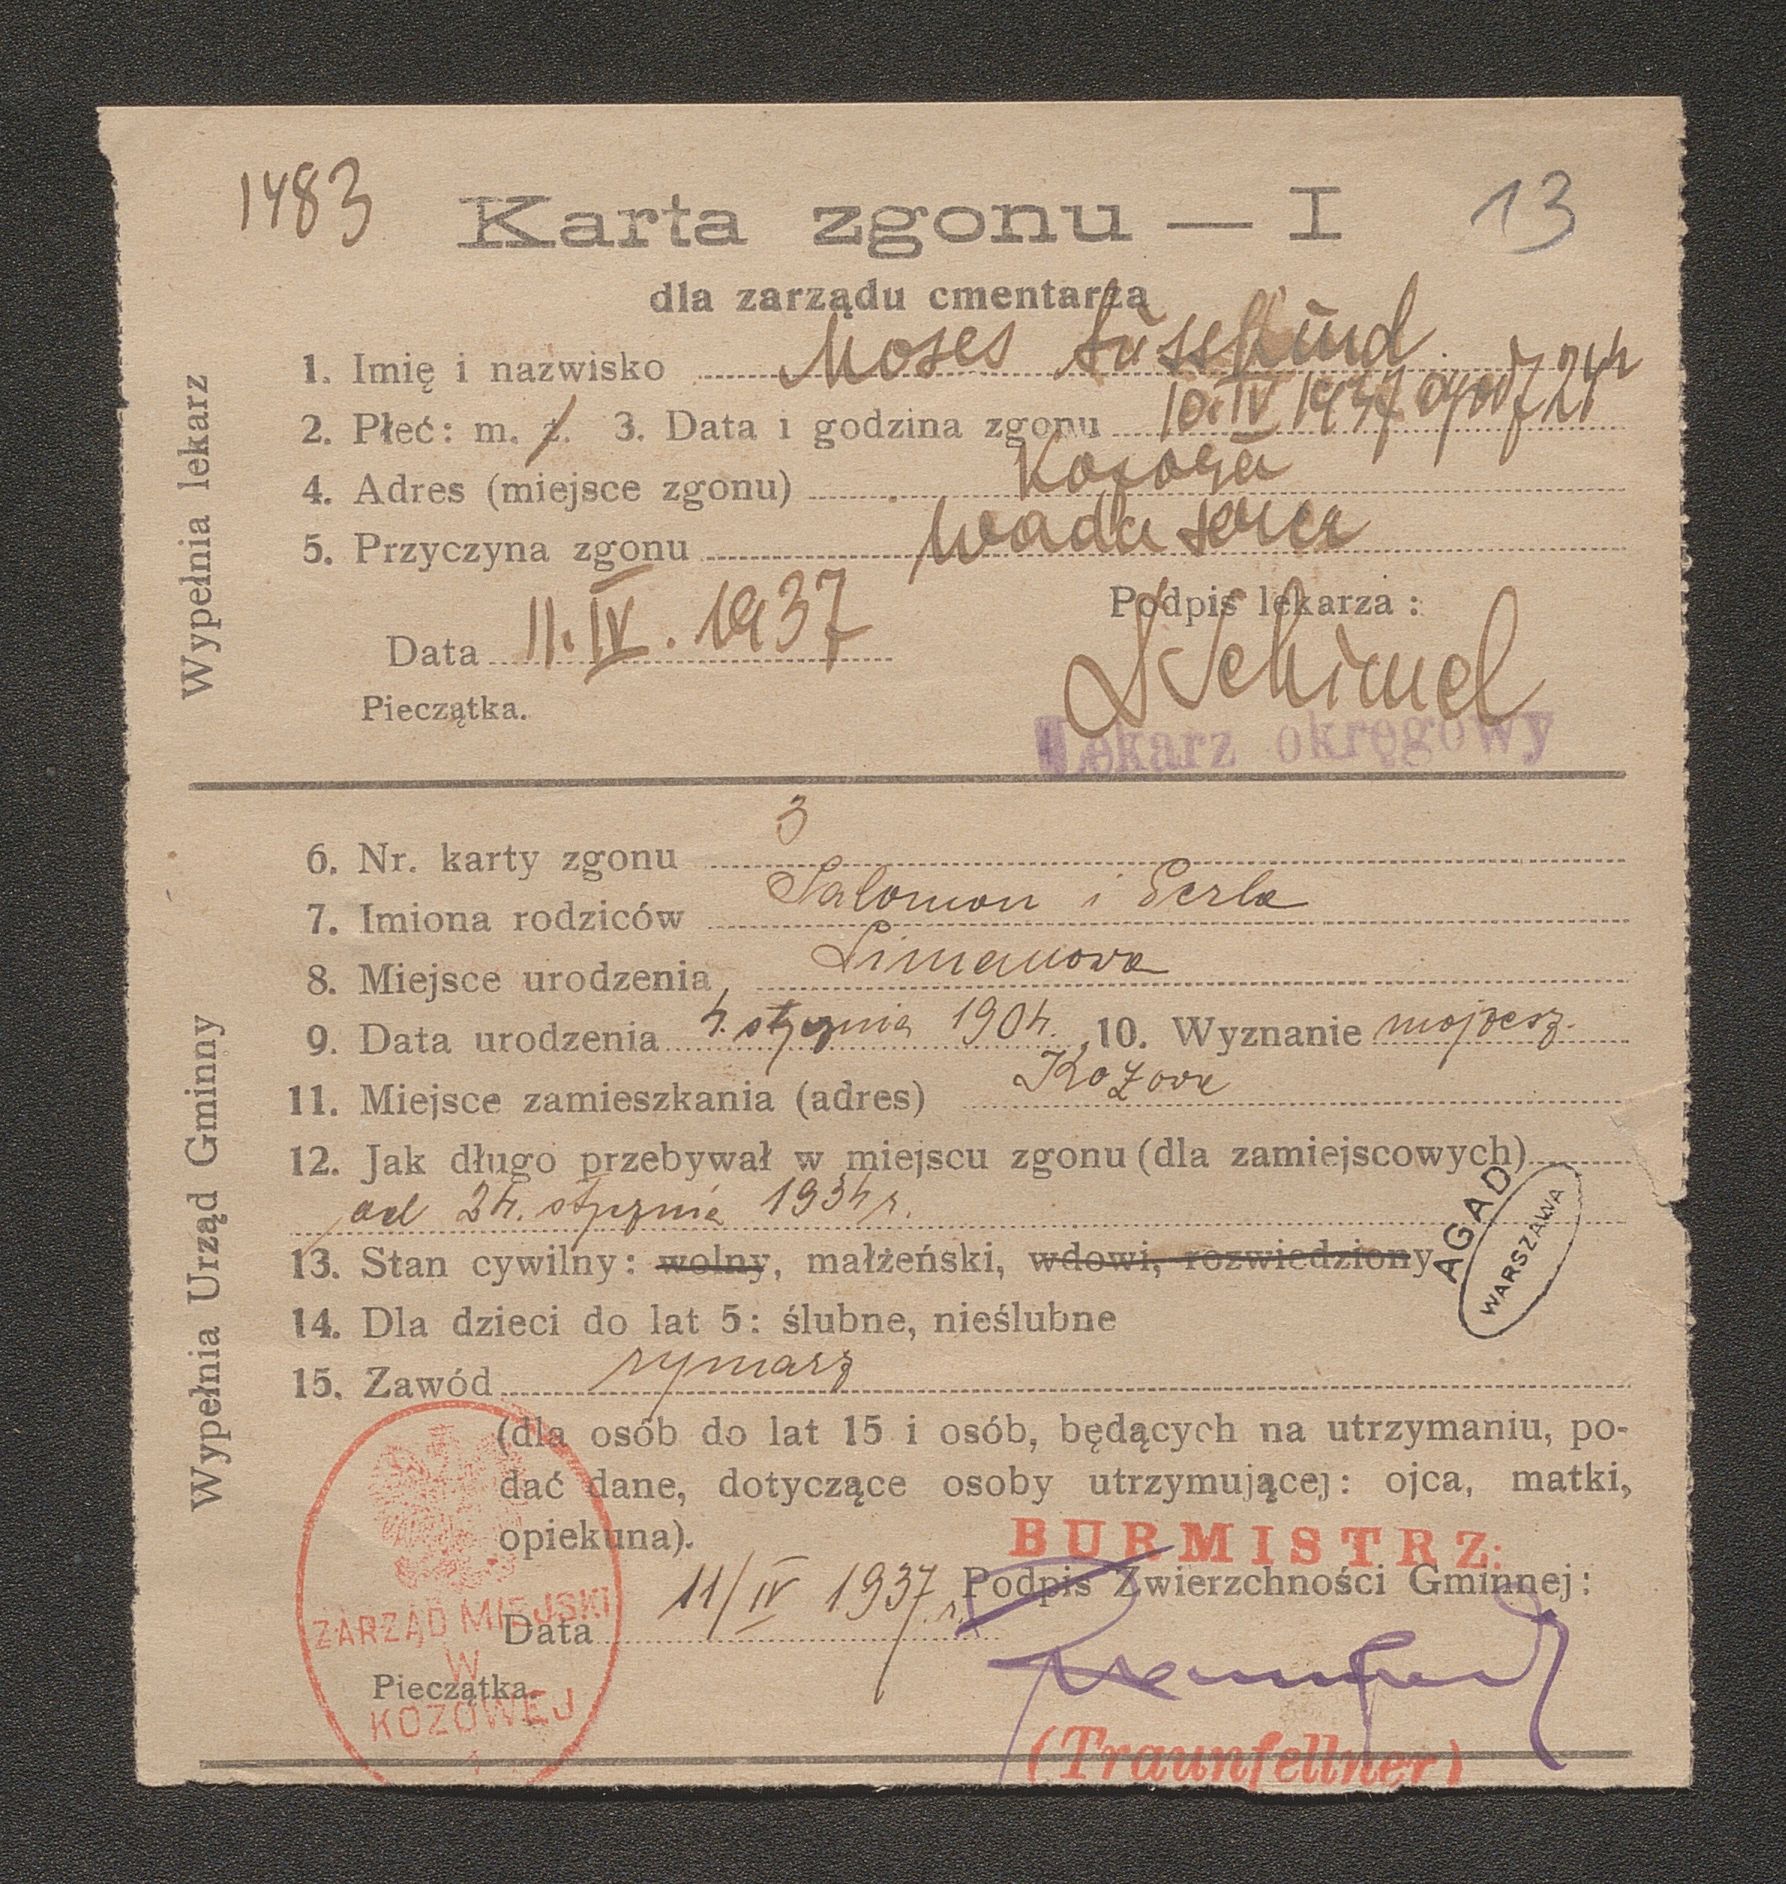 1483
13
Karta zgonu — I
dla zarządu cmentarza
Wypełnia lekarz
1. Imię i nazwisko Moses Süsskind
2. Płeć: m. ż. 3. Data i godzina zgonu 10.IV 1937 o godz 24h
4. Adres (miejsce zgonu) Kozowa
5. Przyczyna zgonu Wada serca
Podpis lekarza:
Data 11.IV.1937
Schimel
Pieczątka.
Lekarz okręgowy
Wypełnia Urząd Gminny
6. Nr. karty zgonu 3
7. Imiona rodziców Salomon i Perla
8. Miejsce urodzenia Limanowa
9. Data urodzenia 4. stycznia 1904. 10. Wyznanie mojżesz.
11. Miejsce zamieszkania (adres) Kozowa
12. Jak długo przebywał w miejscu zgonu (dla zamiejscowych)
od 24. stycznia 1934 r.
13. Stan cywilny: wolny, małżeński, wdowi, rozwiedziony
AGAD
WARSZAWA
14. Dla dzieci do lat 5: ślubne, nieślubne
15. Zawód rymarz
(dla osób do lat 15 i osób, będących na utrzymaniu, po-
dać dane, dotyczące osoby utrzymującej: ojca, matki,
opiekuna).
BURMISTRZ:
Podpis Zwierzchności Gminnej:
Data 11/IV 1937 r.
Pieczątka.
ZARZĄD MIEJSKI
W
KOZOWEJ
(Traunfellner)